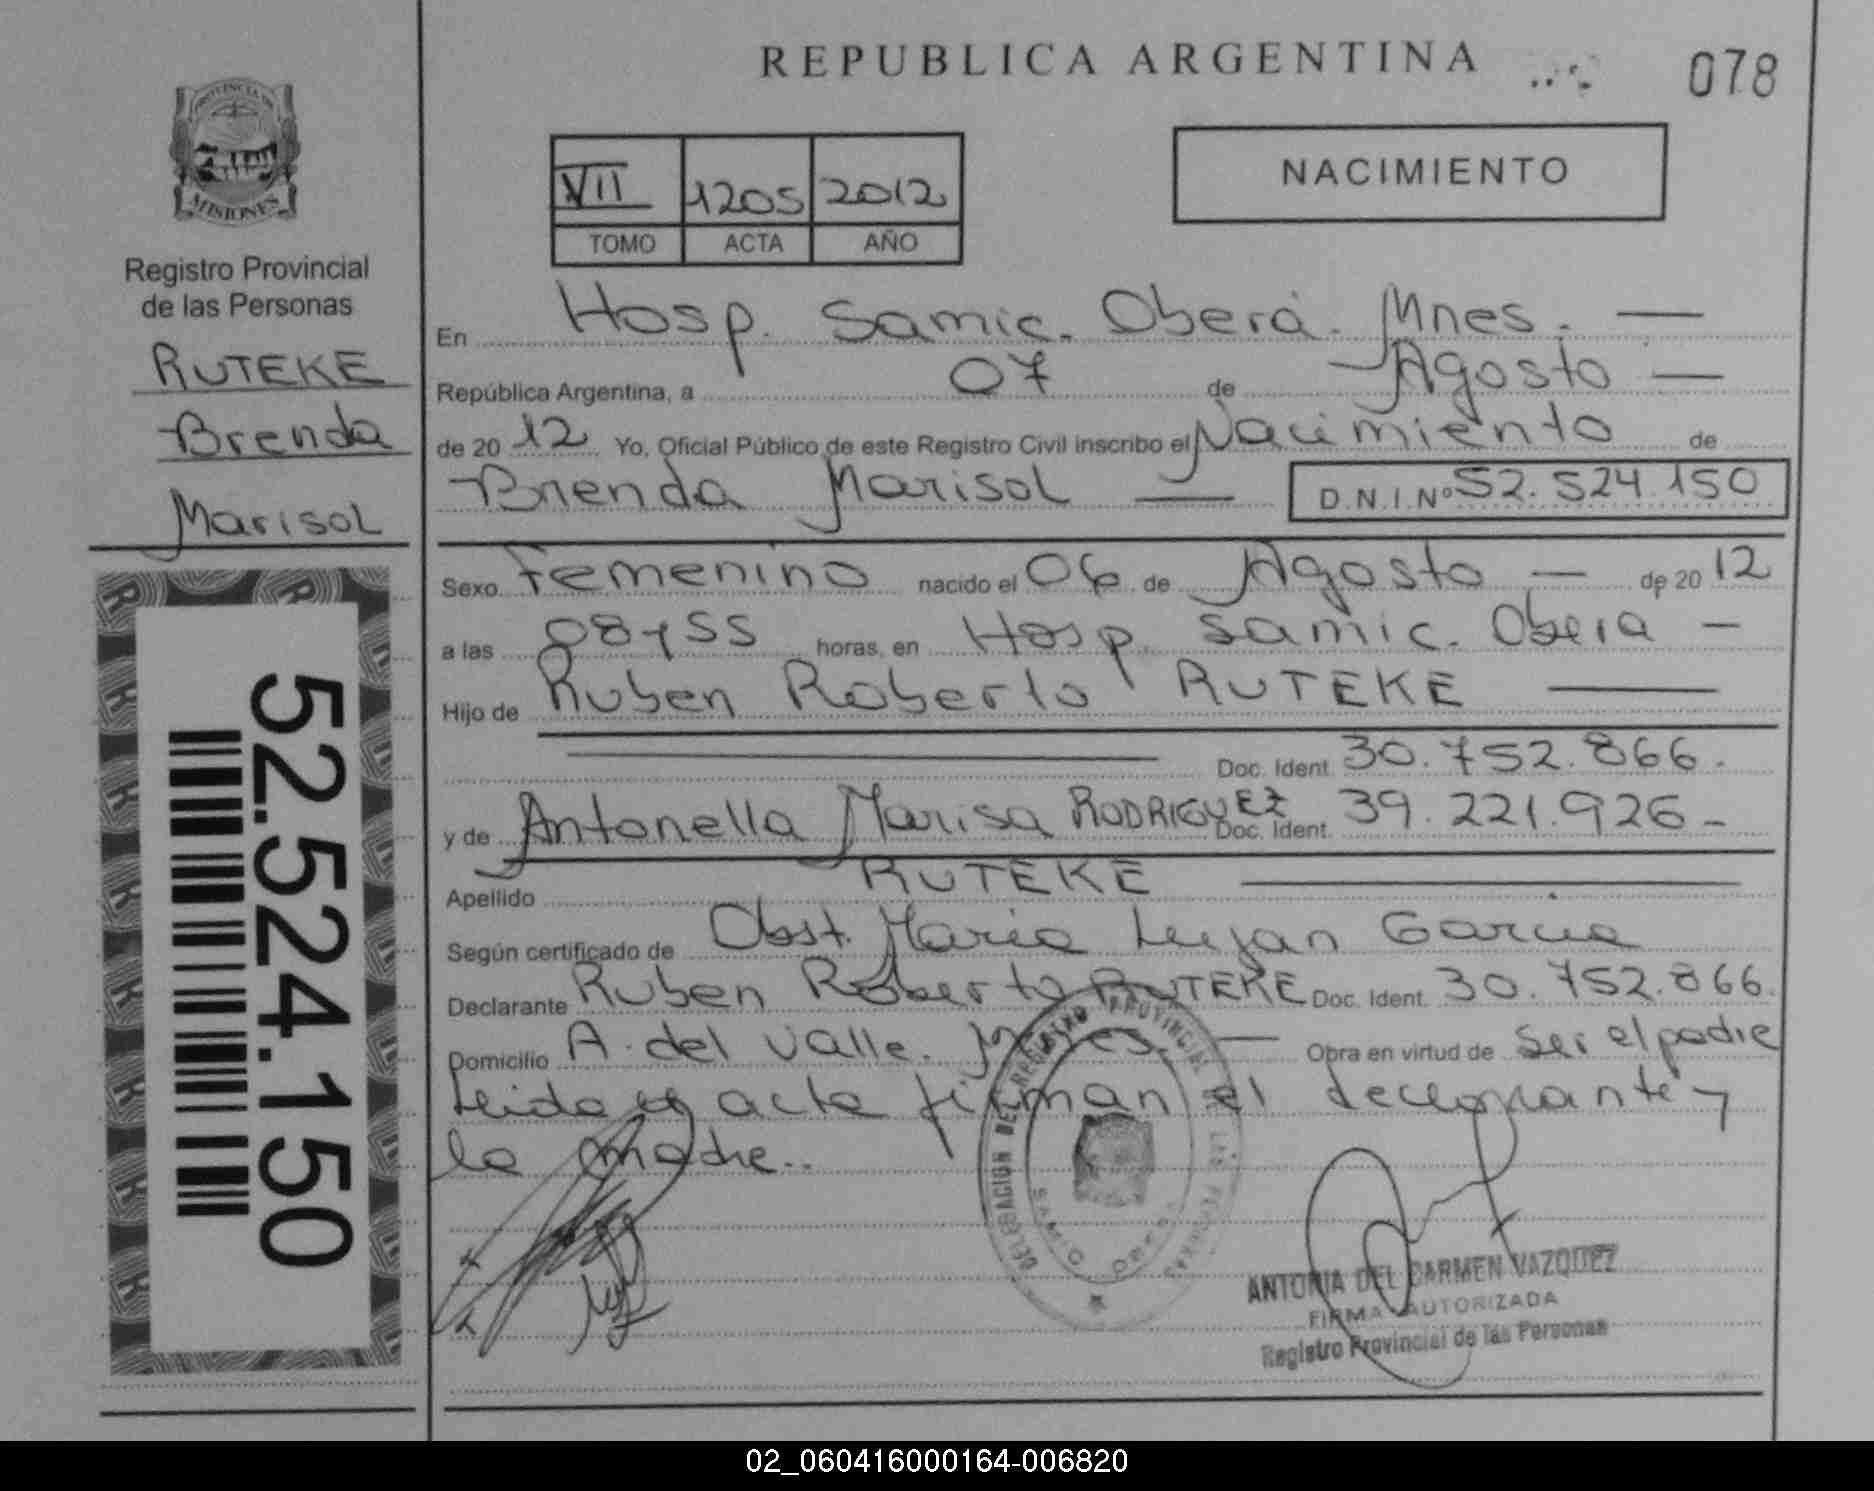 REPUBLICA ARGENTINA
078
PROVINCIA DE
MISIONES
Registro Provincial
de las Personas
RUTEKE
Brenda
Marisol
52.524.150
VII 1205 2012
TOMO ACTA AÑO
NACIMIENTO
En Hosp. Samic. Oberá. Mnes. —
República Argentina, a 07 de Agosto —
de 20 12 Yo, Oficial Público de este Registro Civil inscribo el Nacimiento de
Brenda Marisol — D.N.I.Nº 52.524.150
Sexo Femenino nacido el 06 de Agosto — de 20 12
a las 08y55 horas, en Hosp. Samic. Oberá —
Hijo de Ruben Roberto RUTEKE —
Doc. Ident. 30.752.866.
y de Antonella Marisa RODRIGUEZ Doc. Ident. 39.221.926-
Apellido RUTEKE —
Según certificado de Obst. Maria Lujan Garcia
Declarante Ruben Roberto RUTEKE Doc. Ident. 30.752.866.
Domicilio A. del Valle. Mnes. — Obra en virtud de ser el padre
Leida el acta firman el declarante y
la madre..
DELEGACION DEL REGISTRO PROVINCIAL DE LAS PERSONAS
SAMIC
ANTONIA DEL CARMEN VAZQUEZ
FIRMA AUTORIZADA
Registro Provincial de las Personas
02_060416000164-006820